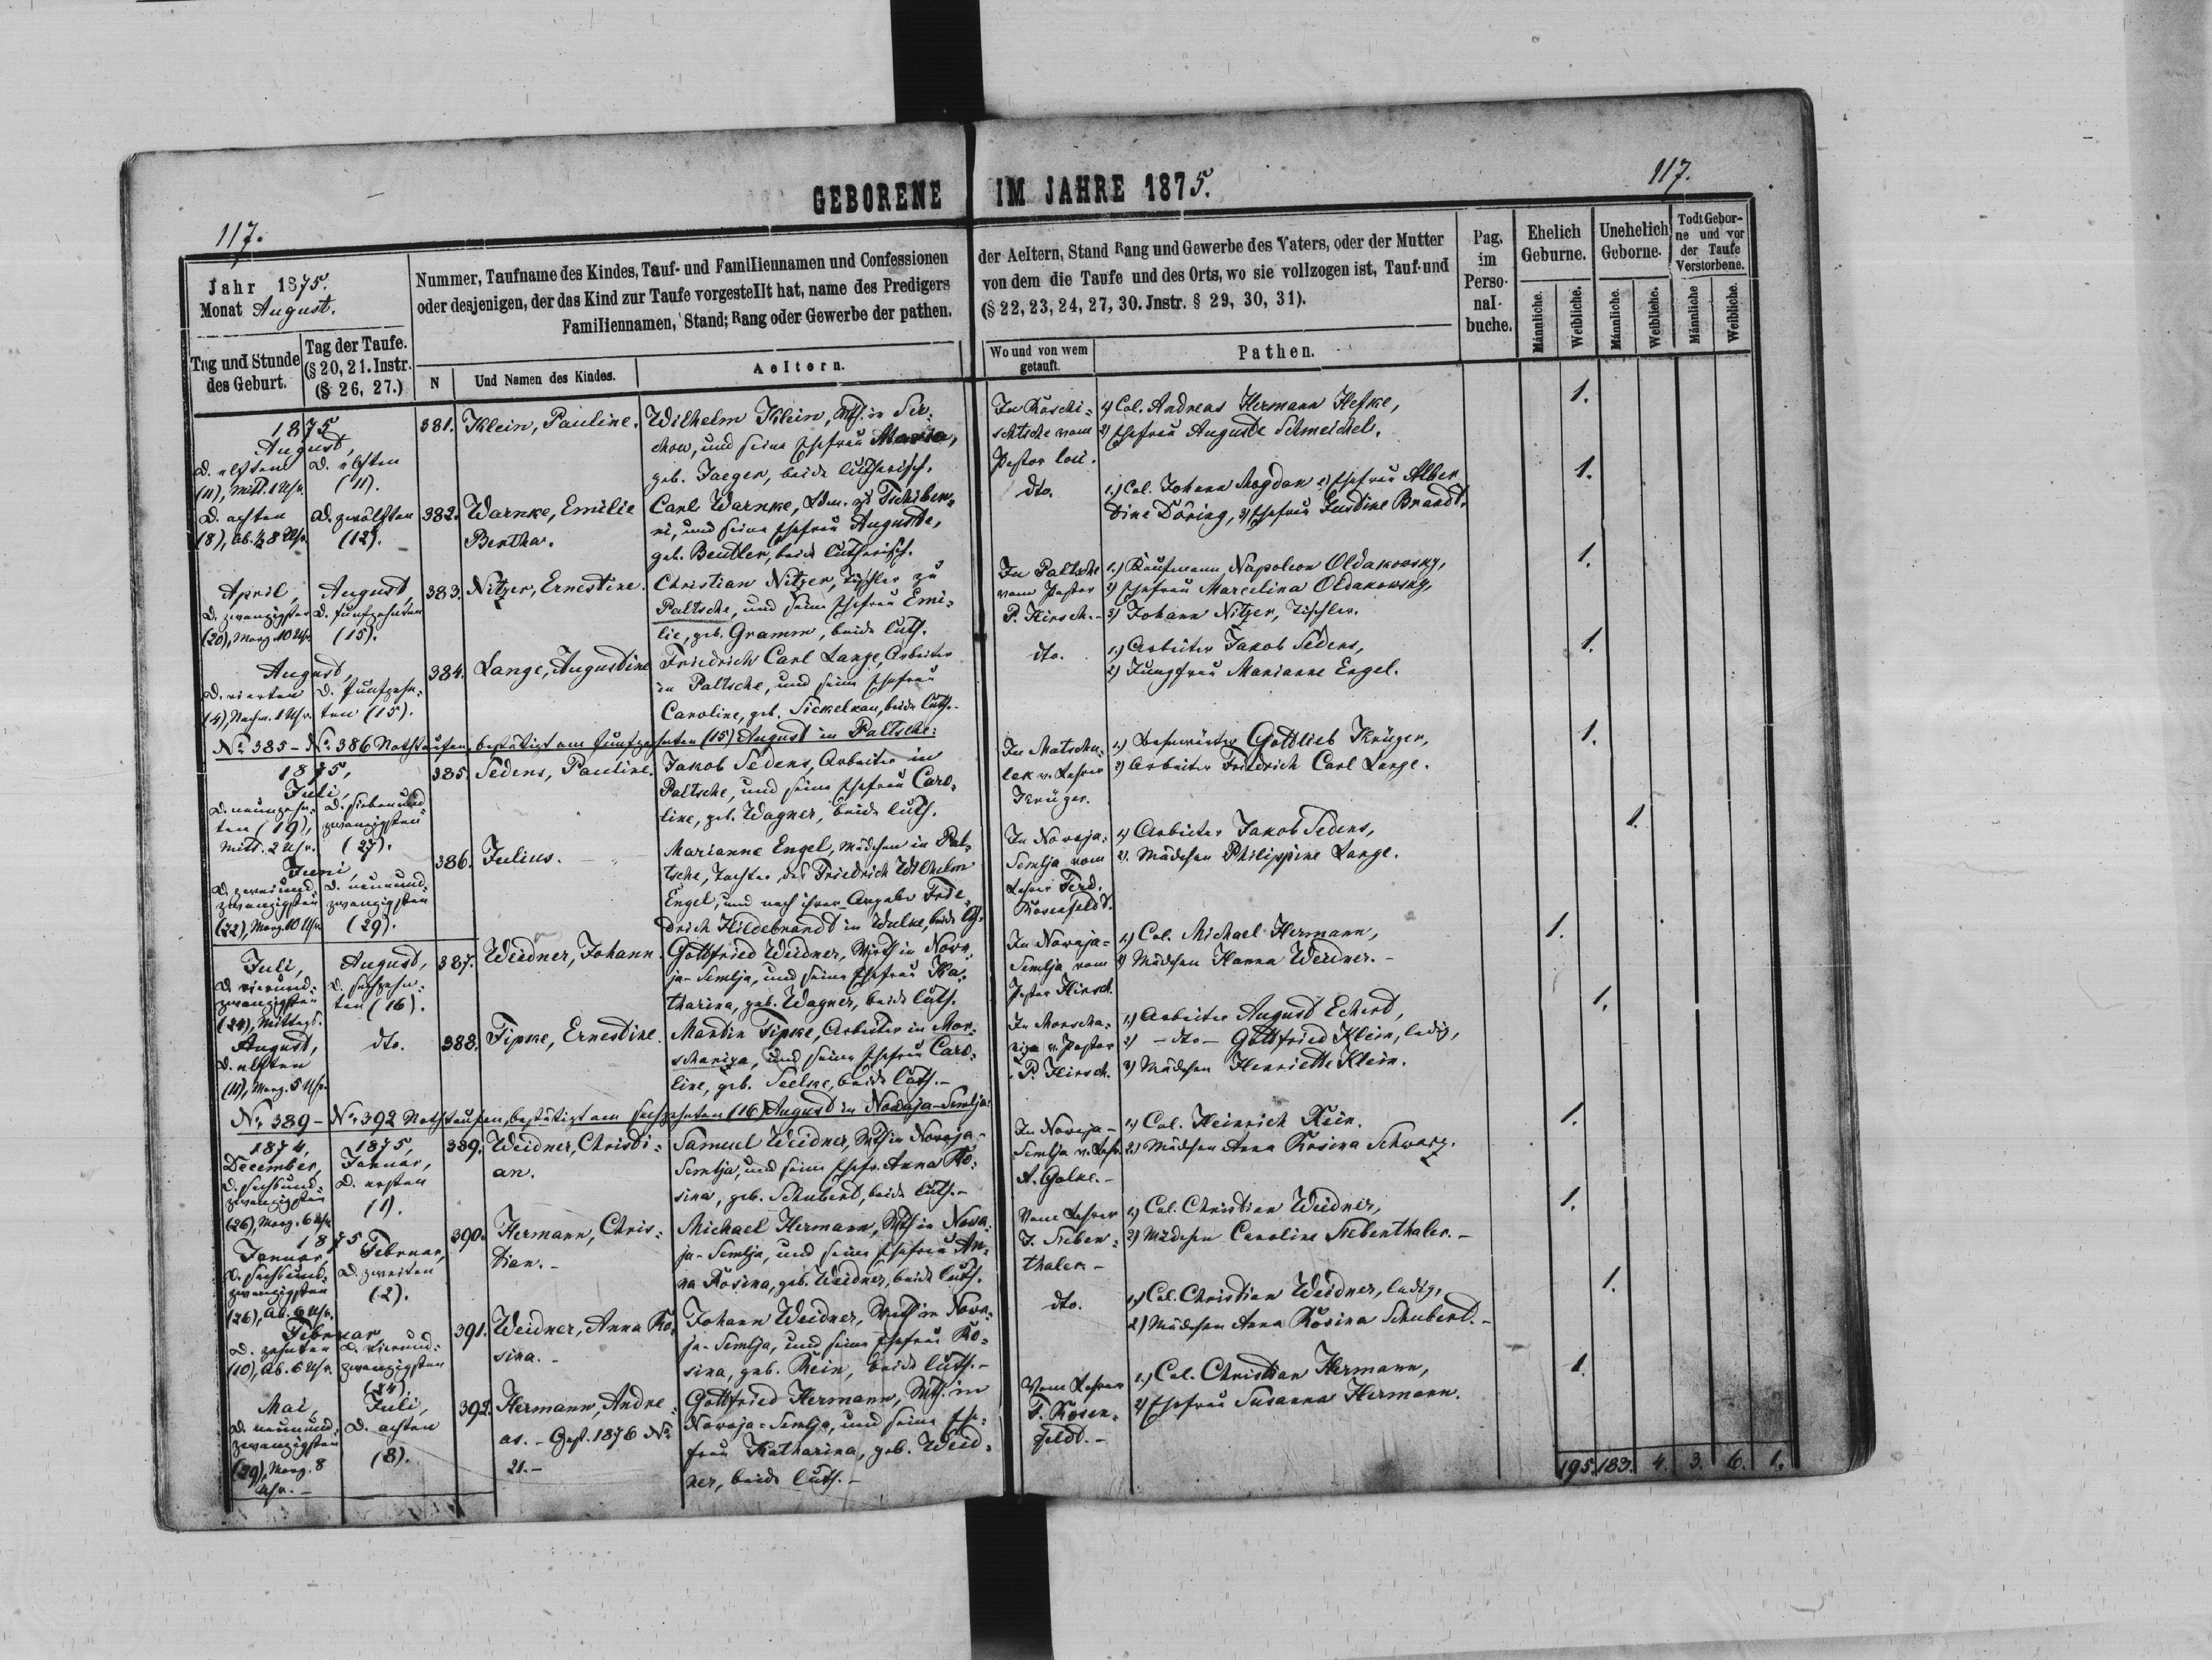 GEBORENE IM JAHRE 1875.
117.
117.
Jahr 1875.
Monat August.
Tag und Stunde
des Geburt.
Tag der Taufe.
(§ 20, 21. Instr.
(§ 26, 27.)
Nummer, Taufname des Kindes, Tauf- und Familiennamen und Confessionen
oder desjenigen, der das Kind zur Taufe vorgestellt hat, name des Predigers
Familiennamen, Stand; Rang oder Gewerbe der pathen.
N
Und Namen des Kindes.
Aeltern.
der Aeltern, Stand Rang und Gewerbe des Vaters, oder der Mutter
von dem die Taufe und des Orts, wo sie vollzogen ist, Tauf- und
(§ 22, 23, 24, 27, 30. Jnstr. § 29, 30, 31).
Wo und von wem
getauft.
Pathen.
Pag.
im
Perso-
nal-
buche.
Ehelich
Geburne.
Unehelich
Geborne.
Todt Gebor-
ne und vor
der Taufe
Verstorbene.
Männliche.
Weibliche.
Männliche.
Weibliche.
Männliche
Weibliche.
1875
August,
d. elften
(11), Mitt. 1 Uhr.
d. elften
(11).
381.
Klein, Pauline.
Wilhelm Klein, Wth. in
und seine Ehefrau Maria,
geb. Jaeger, beide lutherisch.
In Koschi-
schtsche vom
Pastor
1) Col. Andreas Hermann Hefke,
2) Ehefrau Auguste Schmeichel.
1.
d. achten
(8), Ab. ½ 8 Uhr.
d. zwölften
(12).
382.
Warnke, Emilie
Bertha.
Carl Warnke,
und seine Ehefrau Auguste,
geb. Beutler, beide lutherisch.
dto.
1.) Col. Johann Mogdan 2) Ehefrau Alber-
tine Döring, 3) Ehefrau Justine Brandt.
1.
April,
d. zwanzigsten
(20), Morg. 10 Uhr.
August,
d. funfzehnten
(15).
383.
Nitzer, Ernestine.
Christian Nitzer, Tischler zu
Paltsche, und seine Ehefrau Emi-
lie, geb. Gramm, beide luth.
In Paltsche
vom Pastor
P. Hirsch.-
1.) Kaufmann Napoleon Oldakowsky,
2) Ehefrau Marcelina Oldakowsky,
3) Johann Nitzer, Tischler.
1.
August,
d. vierten
(4), Nachm. 1 Uhr.
d. funfzehn-
ten (15).
384.
Lange, Augustine
Friedrich Carl Lange, Arbeiter
in Paltsche, und seine Ehefrau
Caroline, geb. Sickelkau, beide luth.-
dto.
1.) Arbeiter Jakob Sedens,
2) Jungfrau Marianne Engel.
1.
No. 385 - No. 386 Nothtaufen, bestätigt am funfzehnten (15) August in Paltsche:
1875,
Juli,
d. neunzehn-
ten (19),
Mitt. 2 Uhr.
d. siebenund-
zwanzigsten
(27).
385.
Sedens, Pauline.
Jakob Sedens, Arbeiter in
Paltsche, und seine Ehefrau Caro-
line, geb. Wagner, beide luth.
In Matschu-
lek v. Lehrer
Krüger.
1) Gottlieb Krüger,
2) Arbeiter Friedrich Carl Lange.
1.
Juni,
d. zweiund-
zwanzigsten
(22), Morg. 10 Uhr.
d. neunund-
zwanzigsten
(29).
386.
Julius.
Marianne Engel, Mädchen in Pal-
tsche, Tochter des Friedrich Wilhelm
Engel, und nach ihrer Angabe Frie-
drich Hildebrandt in Wulke, beide luth.
In Nowaja-
Semlja vom
Lehrer Ferd.
Rosenfeldt.
1) Arbeiter Jakob Sedens,
2. Mädchen Philippine Lange.
1.
Juli,
d. vierund-
zwanzigsten
(24), Mittags.
August,
d. sechzehn-
ten (16).
387.
Weidner, Johann.
Gottfried Weidner, Wirth in Nowa-
ja-Semlja, und seine Ehefrau Ka-
tharina, geb. Wagner, beide luth.
In Nowaja-
Semlja vom
Pastor Hirsch.
1) Col. Michael Hermann,
2) Mädchen Hanna Weidner.-
1.
August,
d. elften
(11), Morg. 5 Uhr.
dto.
388.
Tipke, Ernestine.
Martin Tipke, Arbeiter in Mor-
schariza, und seine Ehefrau Caro-
line, geb. Seelke, beide luth.-
In Morscha-
riza v. Pastor
P. Hirsch.
1) Arbeiter August Echert,
2) - dto - Gottfried Klein, ledig,
3) Mädchen Henriette Klein.
1.
No. 389 - No. 392 Nothtaufen, bestätigt am sechzehnten (16) August in Nowaja-Semlja:
1874,
December,
d. sechsund-
zwanzigsten
(26), Morg. 6 Uhr.
1875,
Januar,
d. ersten
(1).
389.
Weidner, Christi-
an.
Samuel Weidner, Wth in Nowaja-
Semlja, und seine Ehefr. Anna Ro-
sina, geb. Schubert, beide luth.-
In Nowaja-
Semlja v. Lehr.
A. Golke.-
1) Col. Heinrich Rein.
2) Mädchen Anna Rosina Schwarz.
1.
1875
Januar,
d. sechsund-
zwanzigsten
(26), Ab. 6 Uhr.
Februar,
d. zweiten
(2).
390.
Hermann, Chris-
tian.-
Michael Hermann, Wth in Nowa-
ja-Semlja, und seine Ehefrau An-
na Rosina, geb. Weidner, beide luth.
Vom Lehrer
J. Sieben-
thaler.-
1) Col. Christian Weidner,
2) Mädchen Caroline Siebenthaler.-
1.
Februar
d. zehnten
(10), Ab. 6 Uhr.
d. vierund-
zwanzigsten
(24).
391.
Weidner, Anna Ro-
sina.-
Johann Weidner, Wirth in Nowa-
ja-Semlja, und seine Ehefrau Ro-
sina, geb. Rein, beide luth.-
dto.
1) Col. Christian Weidner, ledig,
2) Mädchen Anna Rosina Schubert.-
1.
Mai,
d. neunund-
zwanzigsten
(29), Morg. 8
Uhr.-
Juli,
d. achten
(8).
392.
Hermann, Andre-
as.- Gest. 1876 No.
21.-
Gottfried Hermann, Wth. in
Nowaja-Semlja, und seine Ehe-
frau Katharina, geb. Weid-
ner, beide luth.-
Vom Lehrer
F. Rosen-
feldt.-
1.) Col. Christian Hermann,
2) Ehefrau Susanna Hermann.
1.
195. 183. 4. 3. 6. 1.